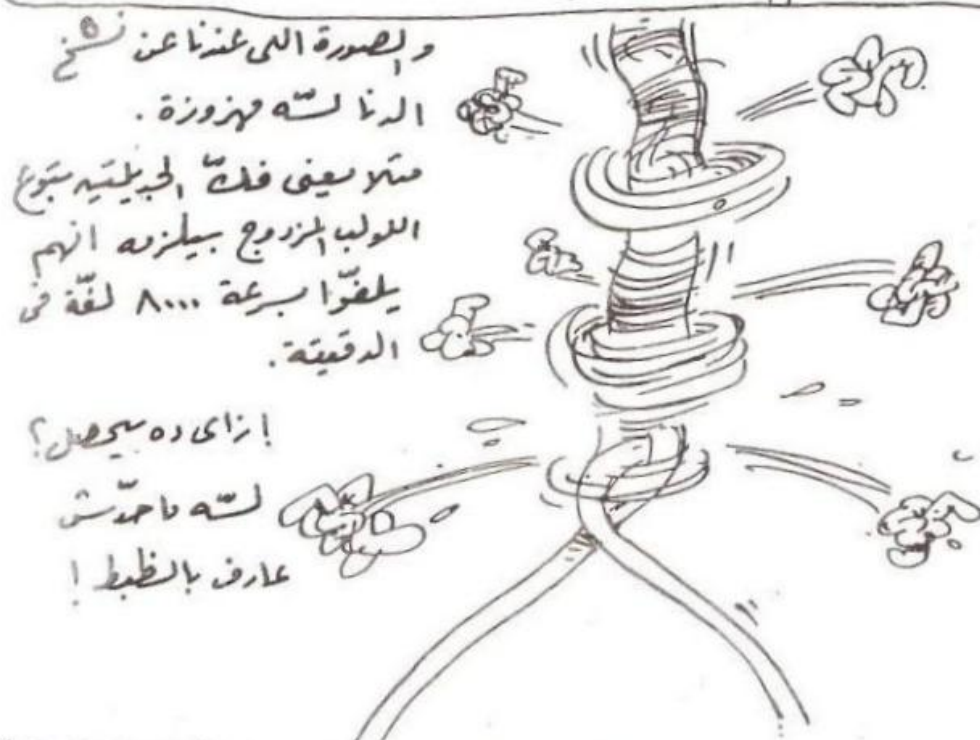 والصورة اللى عندنا عن نسخ
الدنا لسّه مهزوزة.
مثلا يعنى فكّ الجديلتين بتوع
اللولب المزدوج بيلزمه انهم
يلفّوا بسرعة ٨٠٠٠ لفّة فى
الدقيقة.
إزاى ده بيحصل؟
لسّه ماحدّش
عارف بالظبط!